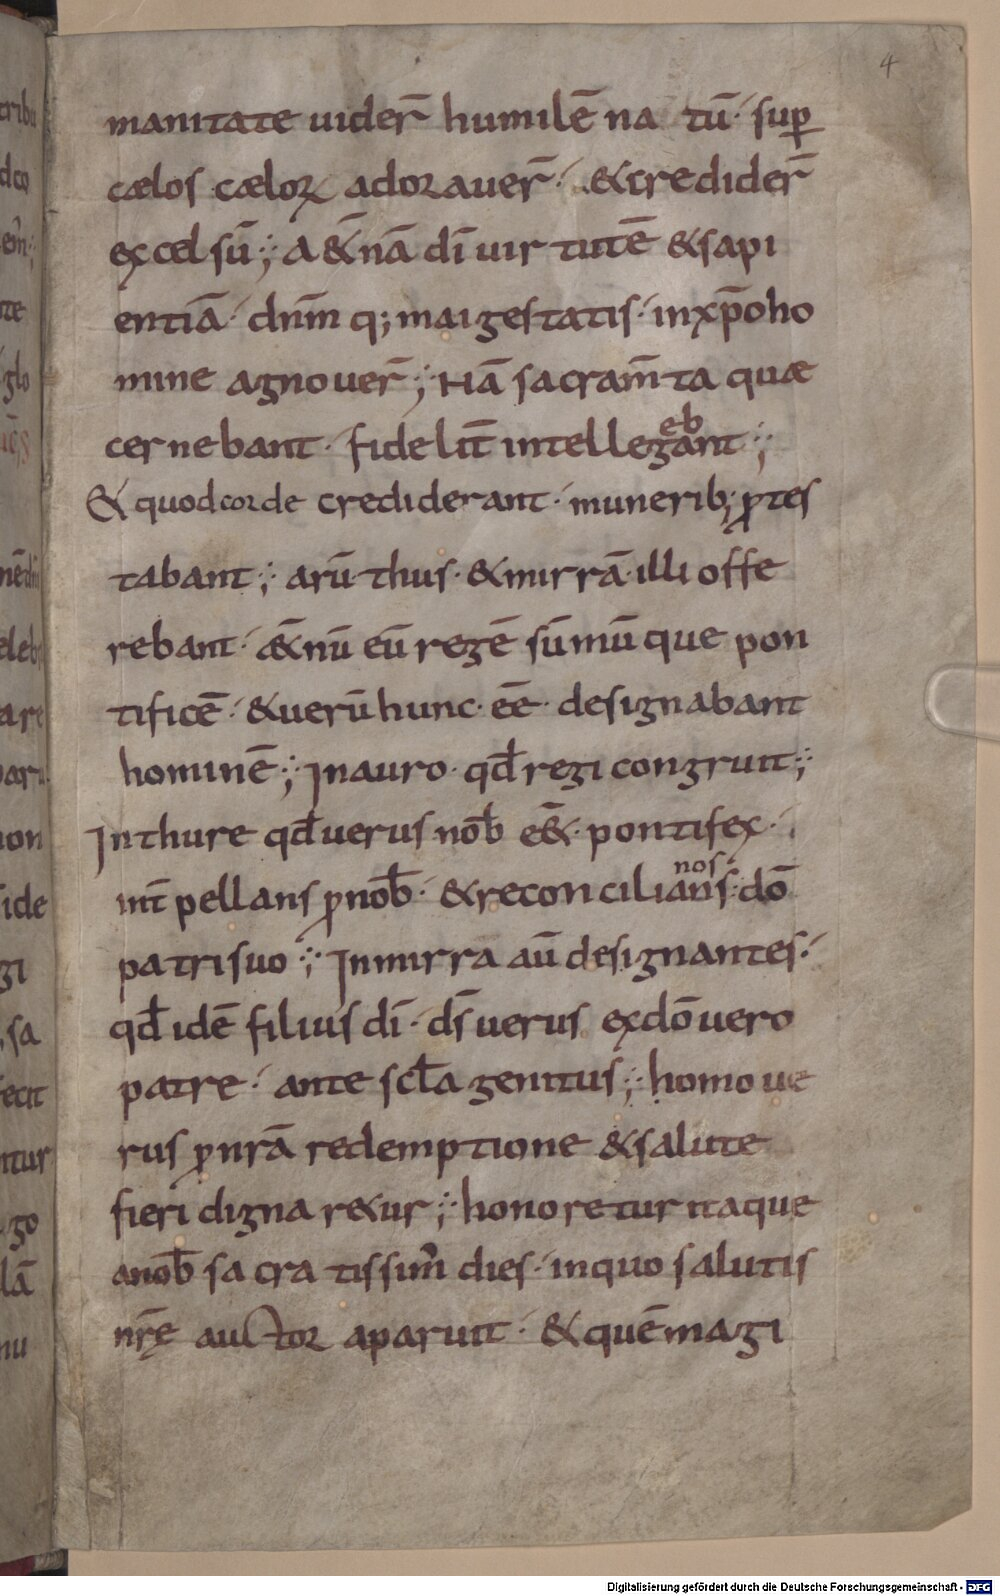 4
manitate uider̄ humilē na tū· sup̄
cælos cæloꝝ adorauer̄· &crediđer̄
excelsū; A&̄nā dī uirtutē &sapi
entiā· dn̄m q; maigestatis· inxp̄oho
mine agnouer̄; Hā sacram̄ta quæ
cernebant· fidelit̄ intellegebant;
& quodcorde crediderant· munerib; ꝓtes
tabant; arū· thus· &mirrā· illi offe
rebant· &̄nū eū regē sūmūque pon
tificē· &uerū hunc· eē· designabant
hominē; Inauro· qd̄ regi congruit;
Inthure qd̄ uerus nob̄ e&̄· pontifex·
int̄pellans ꝓnob̄· &reconcilians nos· dō
patri suo; Inmirra aū designantes·
qd̄ idē filius dī· ds̄ uerus exdō uero
patre· ante scl̄a genitus; homo ue
rus ꝓnr̄ā redemptione &salute
fieri dignar&ur; honoretur itaque
anob̄ sacratissim̄ dies· inquo salutis
nr̄ę auctor aparuit· &quē magi
Digitalisierung gefördert durch die Deutsche Forschungsgemeinschaft - DFG